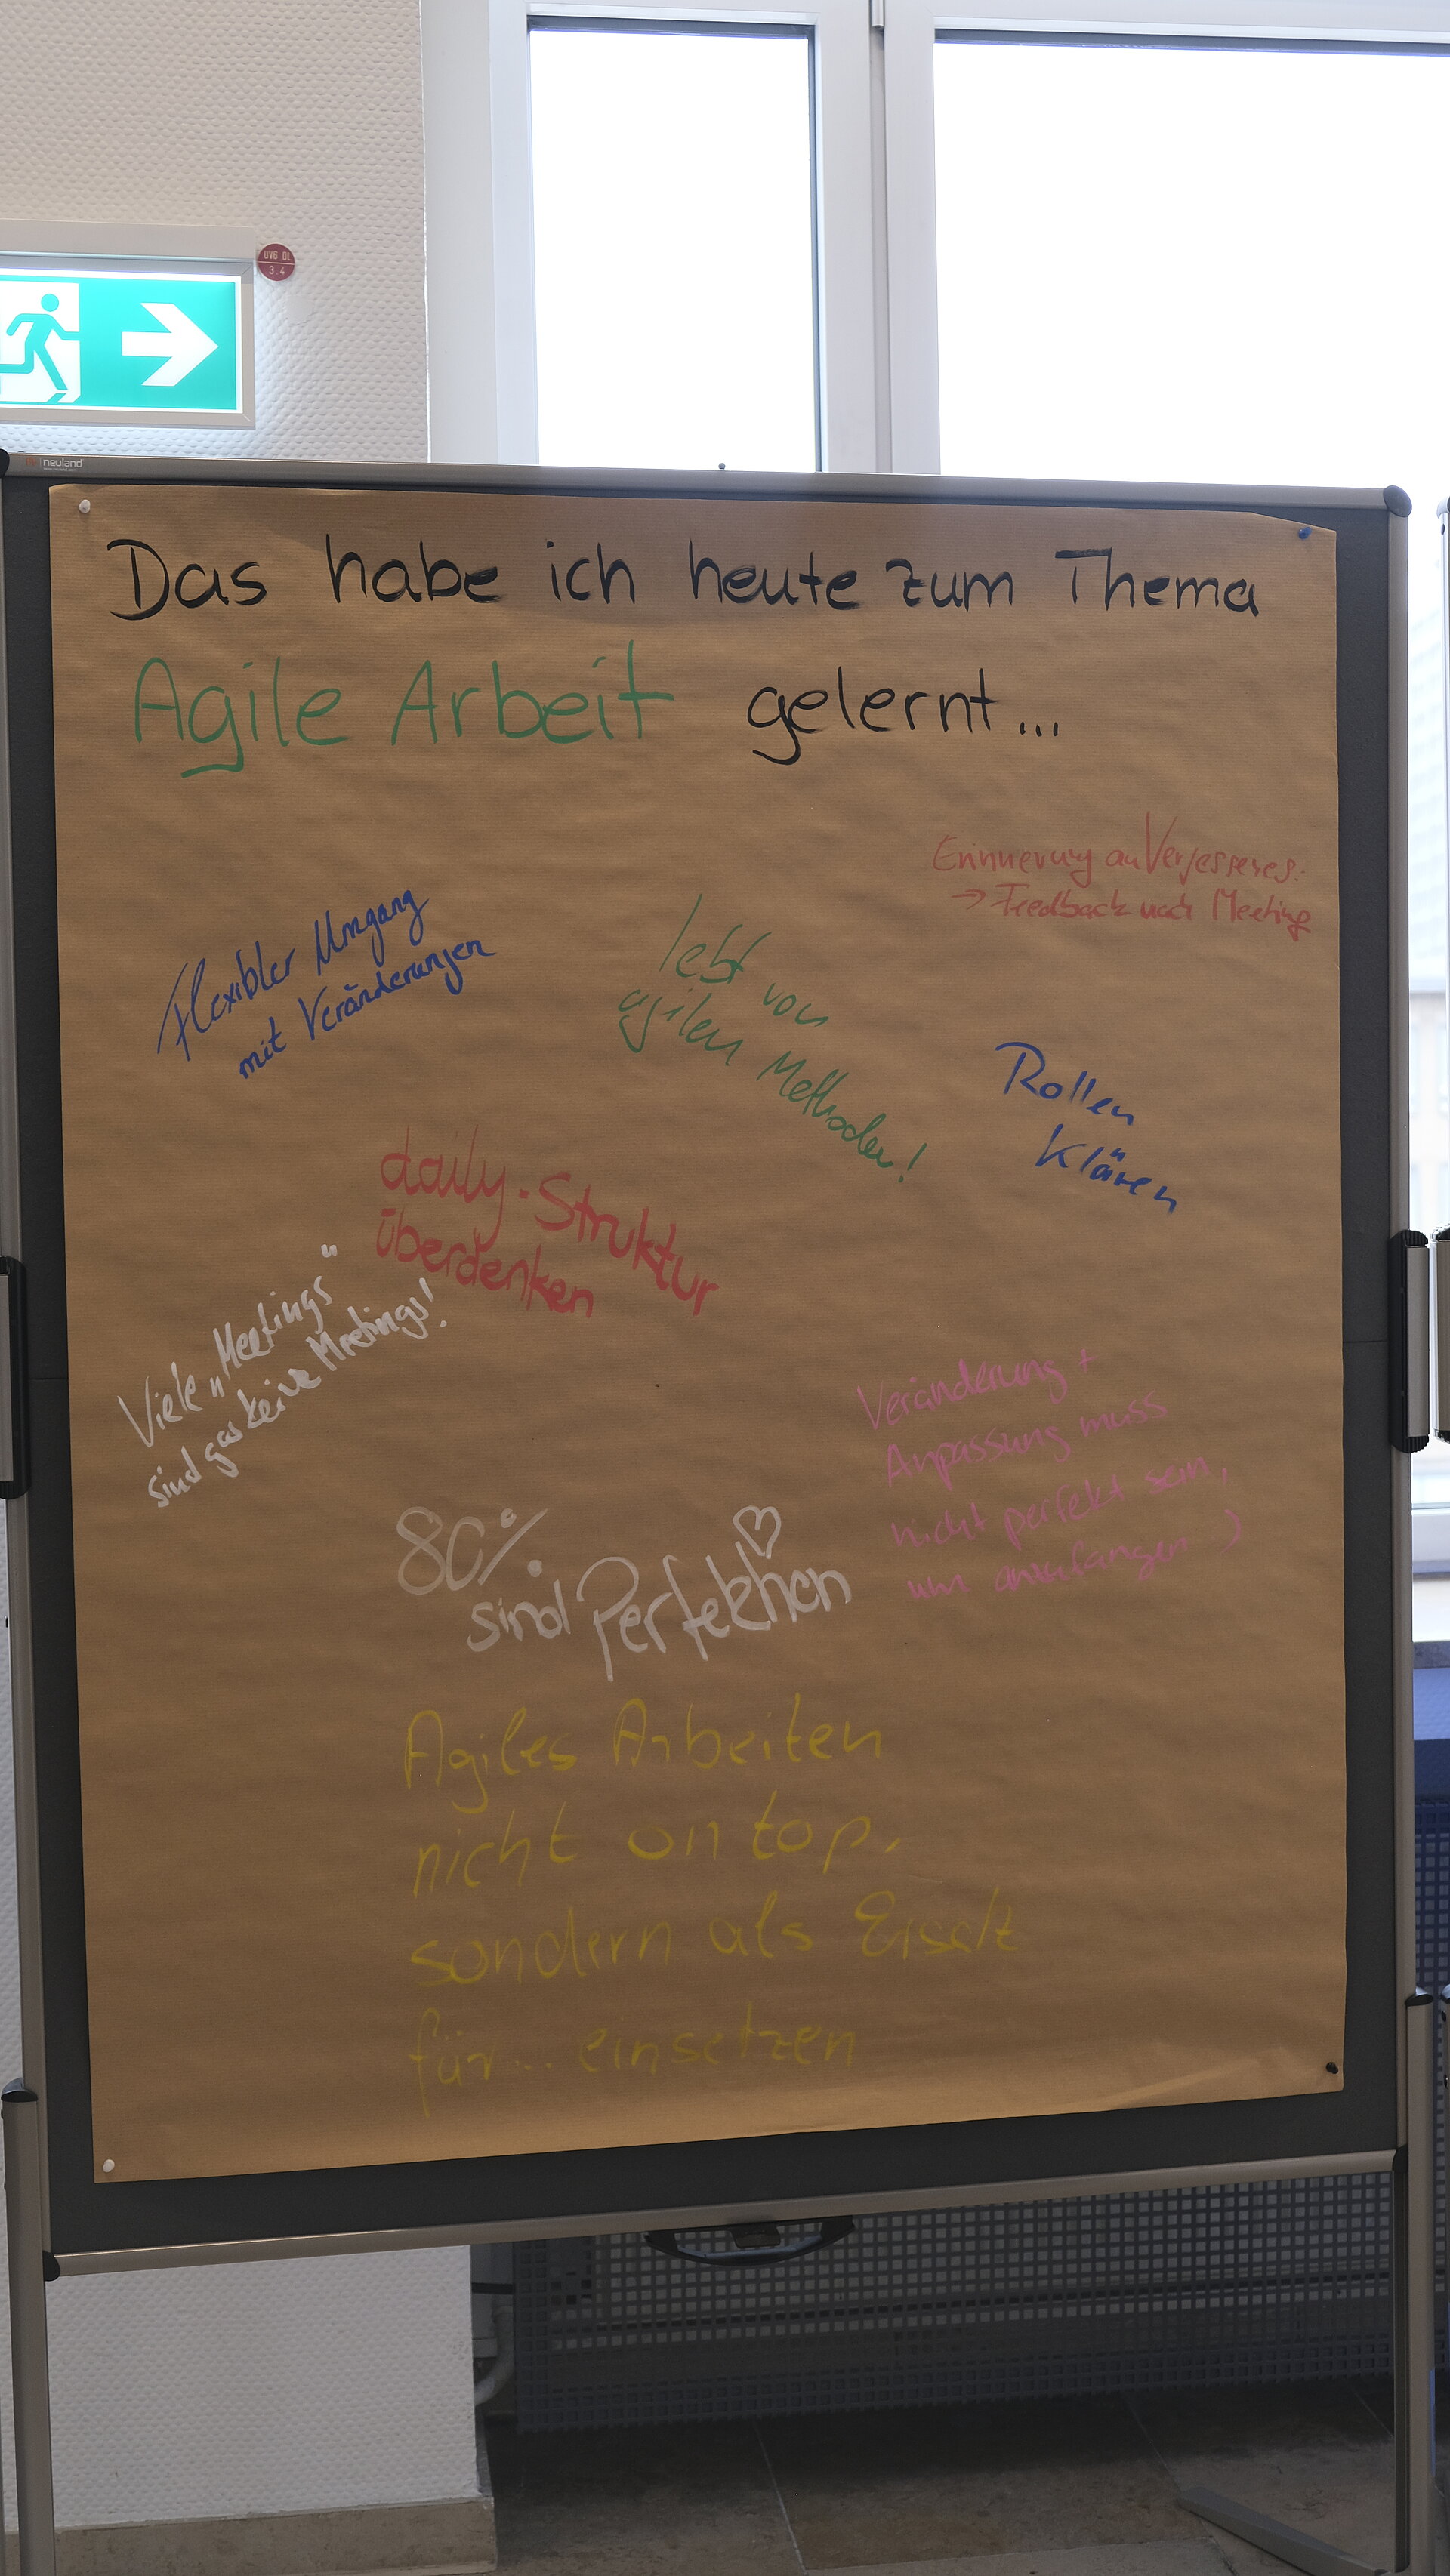 UVG DL
3.4
neuland
Das habe ich heute zum Thema
Agile Arbeit gelernt...
Erinnerung an Vergessenes:
→ Feedback nach Meeting
Flexibler Umgang
mit Veränderungen
lebt von
agilen Methoden!
Rollen
klären
daily-Struktur
überdenken
Viele „Meetings“
sind gar keine Meetings!
Veränderung +
Anpassung muss
nicht perfekt sein,
um anzufangen :)
80%
sind Perfektion
Agiles Arbeiten
nicht on top,
sondern als Ersatz
für... einsetzen